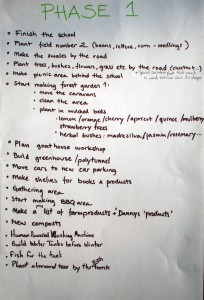 PHASE 1
• Finish the school
• Plant field number 2 (beans, lettuce, corn - seedlings)
• Make the swales by the road
• Plant trees, bushes, flowers, grass etc. by the road (chestnut...)
• Make picnic area behind the school
• Start making forest garden 1:
• move the caravans
• clean the area
• plant in mulched beds
- lemon/orange/cherry/apricot/quince/mulberry
strawberry trees
- herbal bushes: madreselva/jasmin/rosemary...
• Plan goathouse workshop
• Build greenhouse/polytunnel
• Move cars to new car parking
• Make shelves for books & products
• Gathering area
• Start making BBQ area
• Make a list of farmproducts + Dannys 'products'
• New composts
• Human Powered Washing Machine
• Build Water Tanks before Winter
• Fish for the tank
• Plant almond tree by the